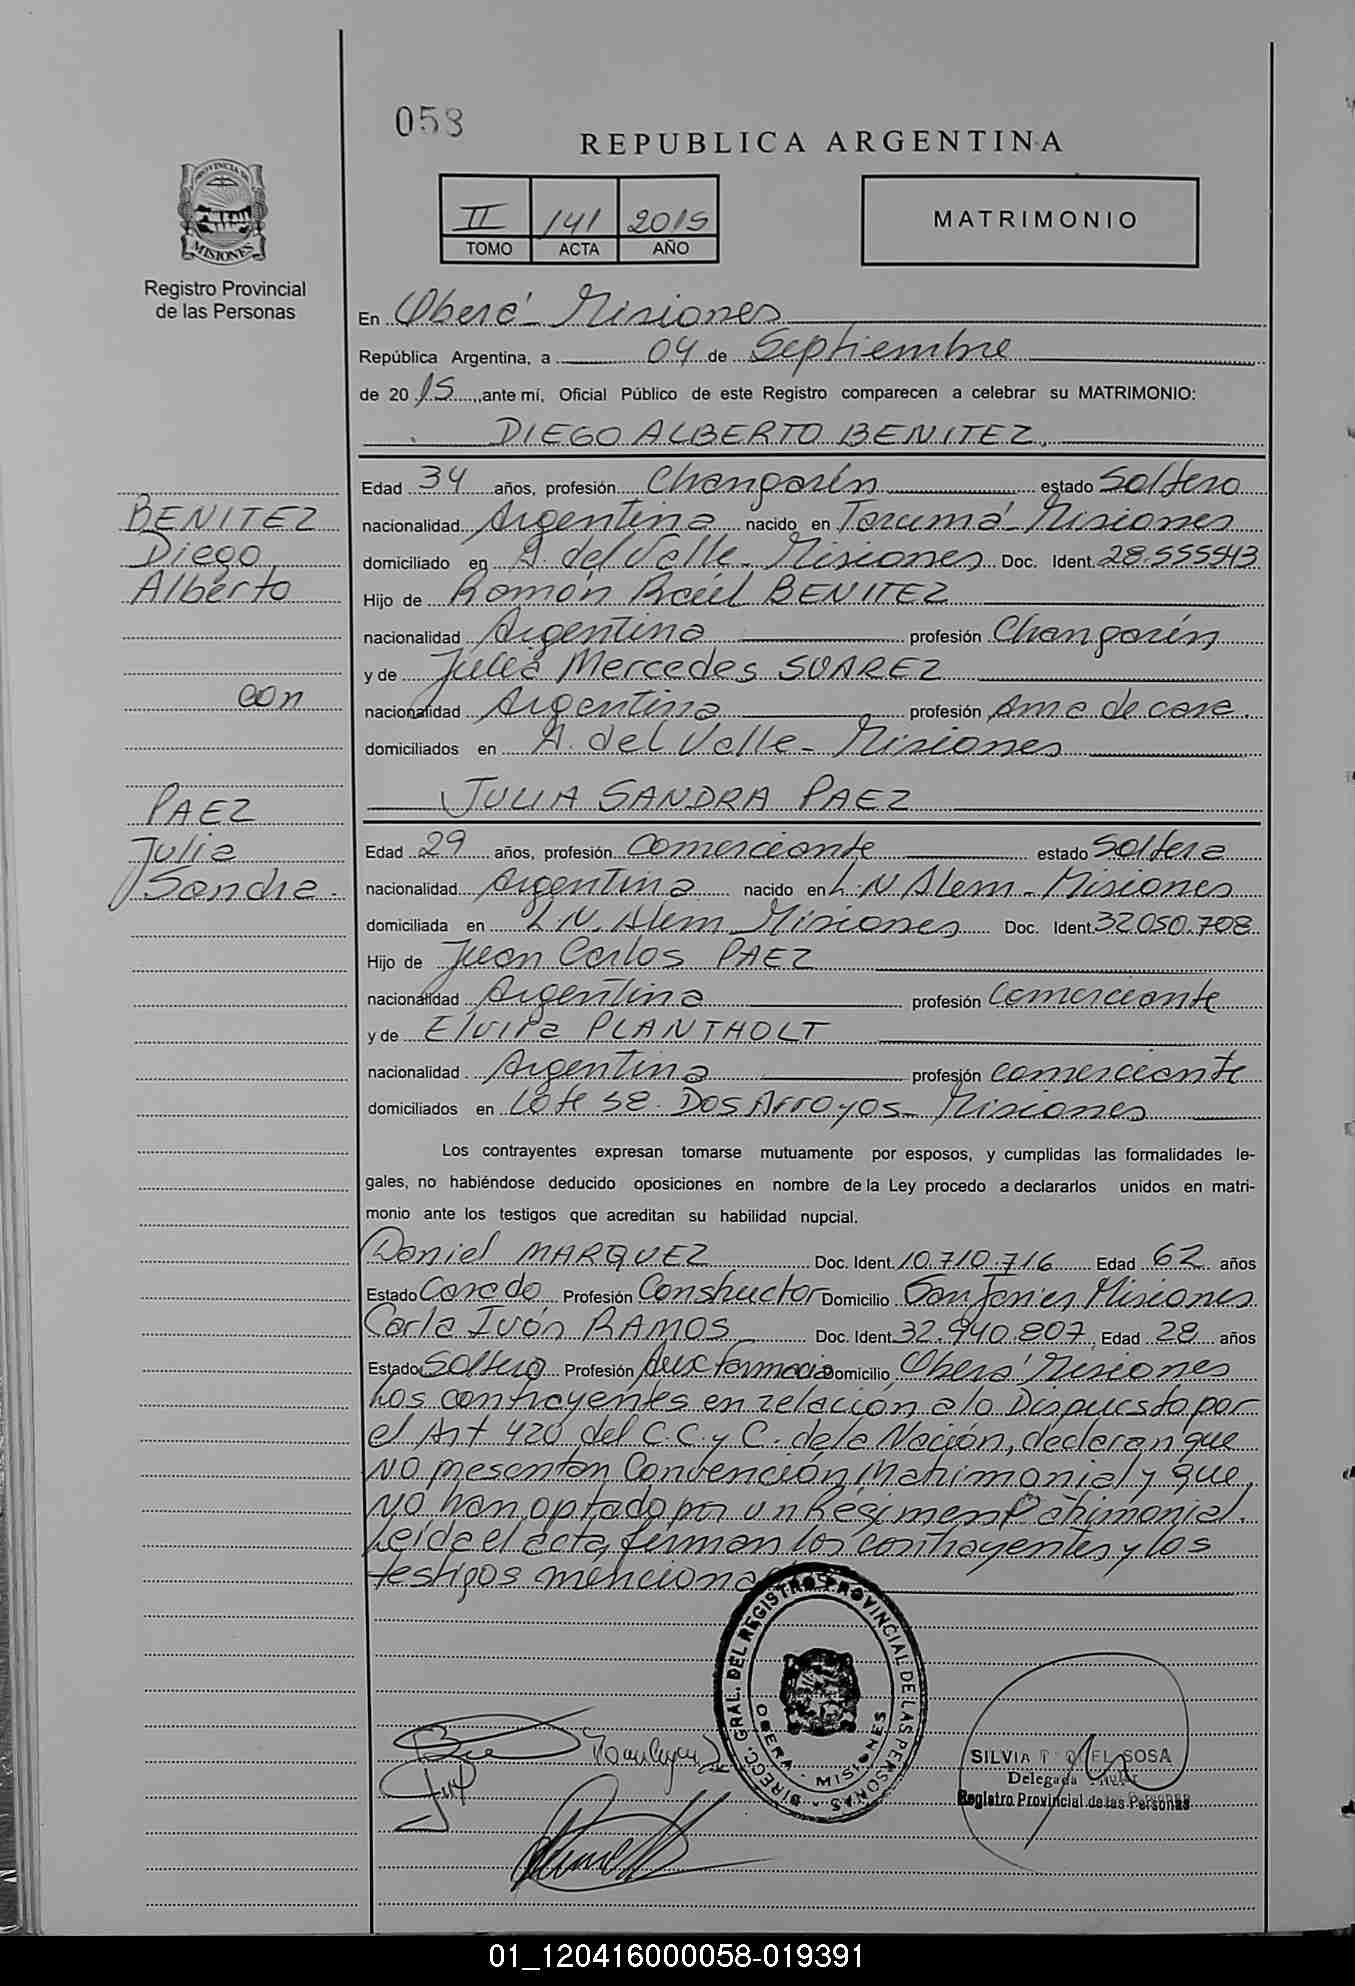 058
REPUBLICA ARGENTINA
PROVINCIA DE
MISIONES
Registro Provincial
de las Personas
II 141 2015
TOMO ACTA AÑO
MATRIMONIO
En Oberá - Misiones
República Argentina, a 04 de Septiembre
de 20 15, ante mí, Oficial Público de este Registro comparecen a celebrar su MATRIMONIO:
DIEGO ALBERTO BENITEZ
BENITEZ
Diego
Alberto
con
PAEZ
Julia
Sandra.
Edad 34 años, profesión Changarín estado Soltero
nacionalidad Argentina nacido en Tarumá - Misiones
domiciliado en A. del Valle - Misiones Doc. Ident. 28.555543
Hijo de Ramón Raúl BENITEZ
nacionalidad Argentina profesión Changarín
y de Julia Mercedes SUAREZ
nacionalidad Argentina profesión Ama de casa.
domiciliados en A. del Valle - Misiones
JULIA SANDRA PAEZ
Edad 29 años, profesión Comerciante estado Soltera
nacionalidad Argentina nacido en L.N Alem - Misiones
domiciliada en L N. Alem Misiones Doc. Ident. 32050.708
Hijo de Juan Carlos PAEZ
nacionalidad Argentina profesión Comerciante
y de Elvira PLANTHOLT
nacionalidad Argentina profesión comerciante
domiciliados en Lote Dos Arroyos - Misiones
Los contrayentes expresan tomarse mutuamente por esposos, y cumplidas las formalidades le-
gales, no habiéndose deducido oposiciones en nombre de la Ley procedo a declararlos unidos en matri-
monio ante los testigos que acreditan su habilidad nupcial.
Daniel MARQUEZ Doc. Ident. 10.710.716 Edad 62 años
Estado Casado Profesión Constructor Domicilio San Javier Misiones
Carla Ivón RAMOS Doc. Ident. 32.940.807 Edad 28 años
Estado Soltera Profesión Aux Farmacia Domicilio Oberá Misiones
Los contrayentes en relación a lo Dispuesto por
el Art 420 del C.C. y C. de la Nación, declaran que
NO presentan Convención Matrimonial y que
NO han optado por un Régimen Patrimonial.
Leída el acta, firman los contrayentes y los
testigos menciona
DIRECC. GRAL. DEL REGISTRO PROVINCIAL DE LAS PERSONAS
OBERA - MISIONES
SILVIA SOSA
Delegada
Registro Provincial de las Personas
01_120416000058-019391